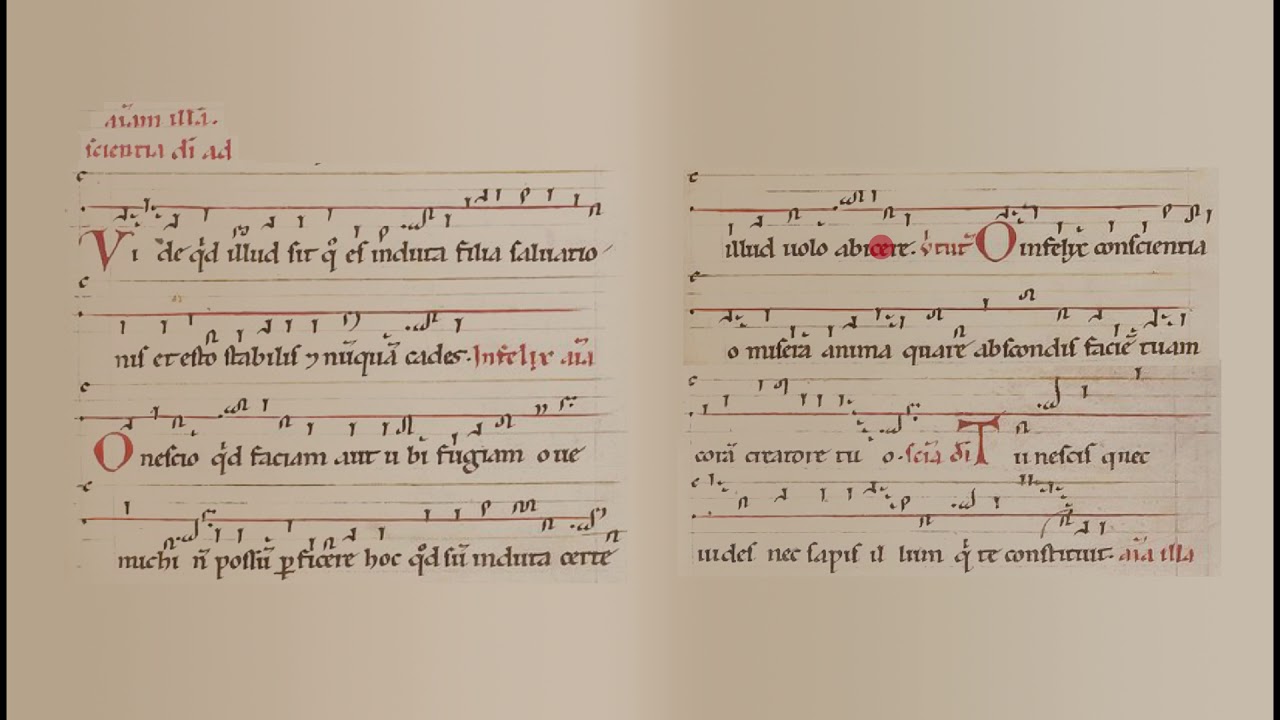 aīam illā.
scientia dī ad
Vide qd illud sit qo es induta filia saluatio
nis et esto stabilis ⁊ nūquā cades. Infelix aīa
O nescio qd faciam aut u bi fugiam o ue
michi n̄ possū pficere hoc qod sū induta certe
illud uolo abicere. Vtut̄ O infelix conscientia
o misera anima quare abscondis faciē tuam
corā creatore tu o. sciā dī Tu nescis quec
uides nec sapis il lum q te constituit. aīa illa